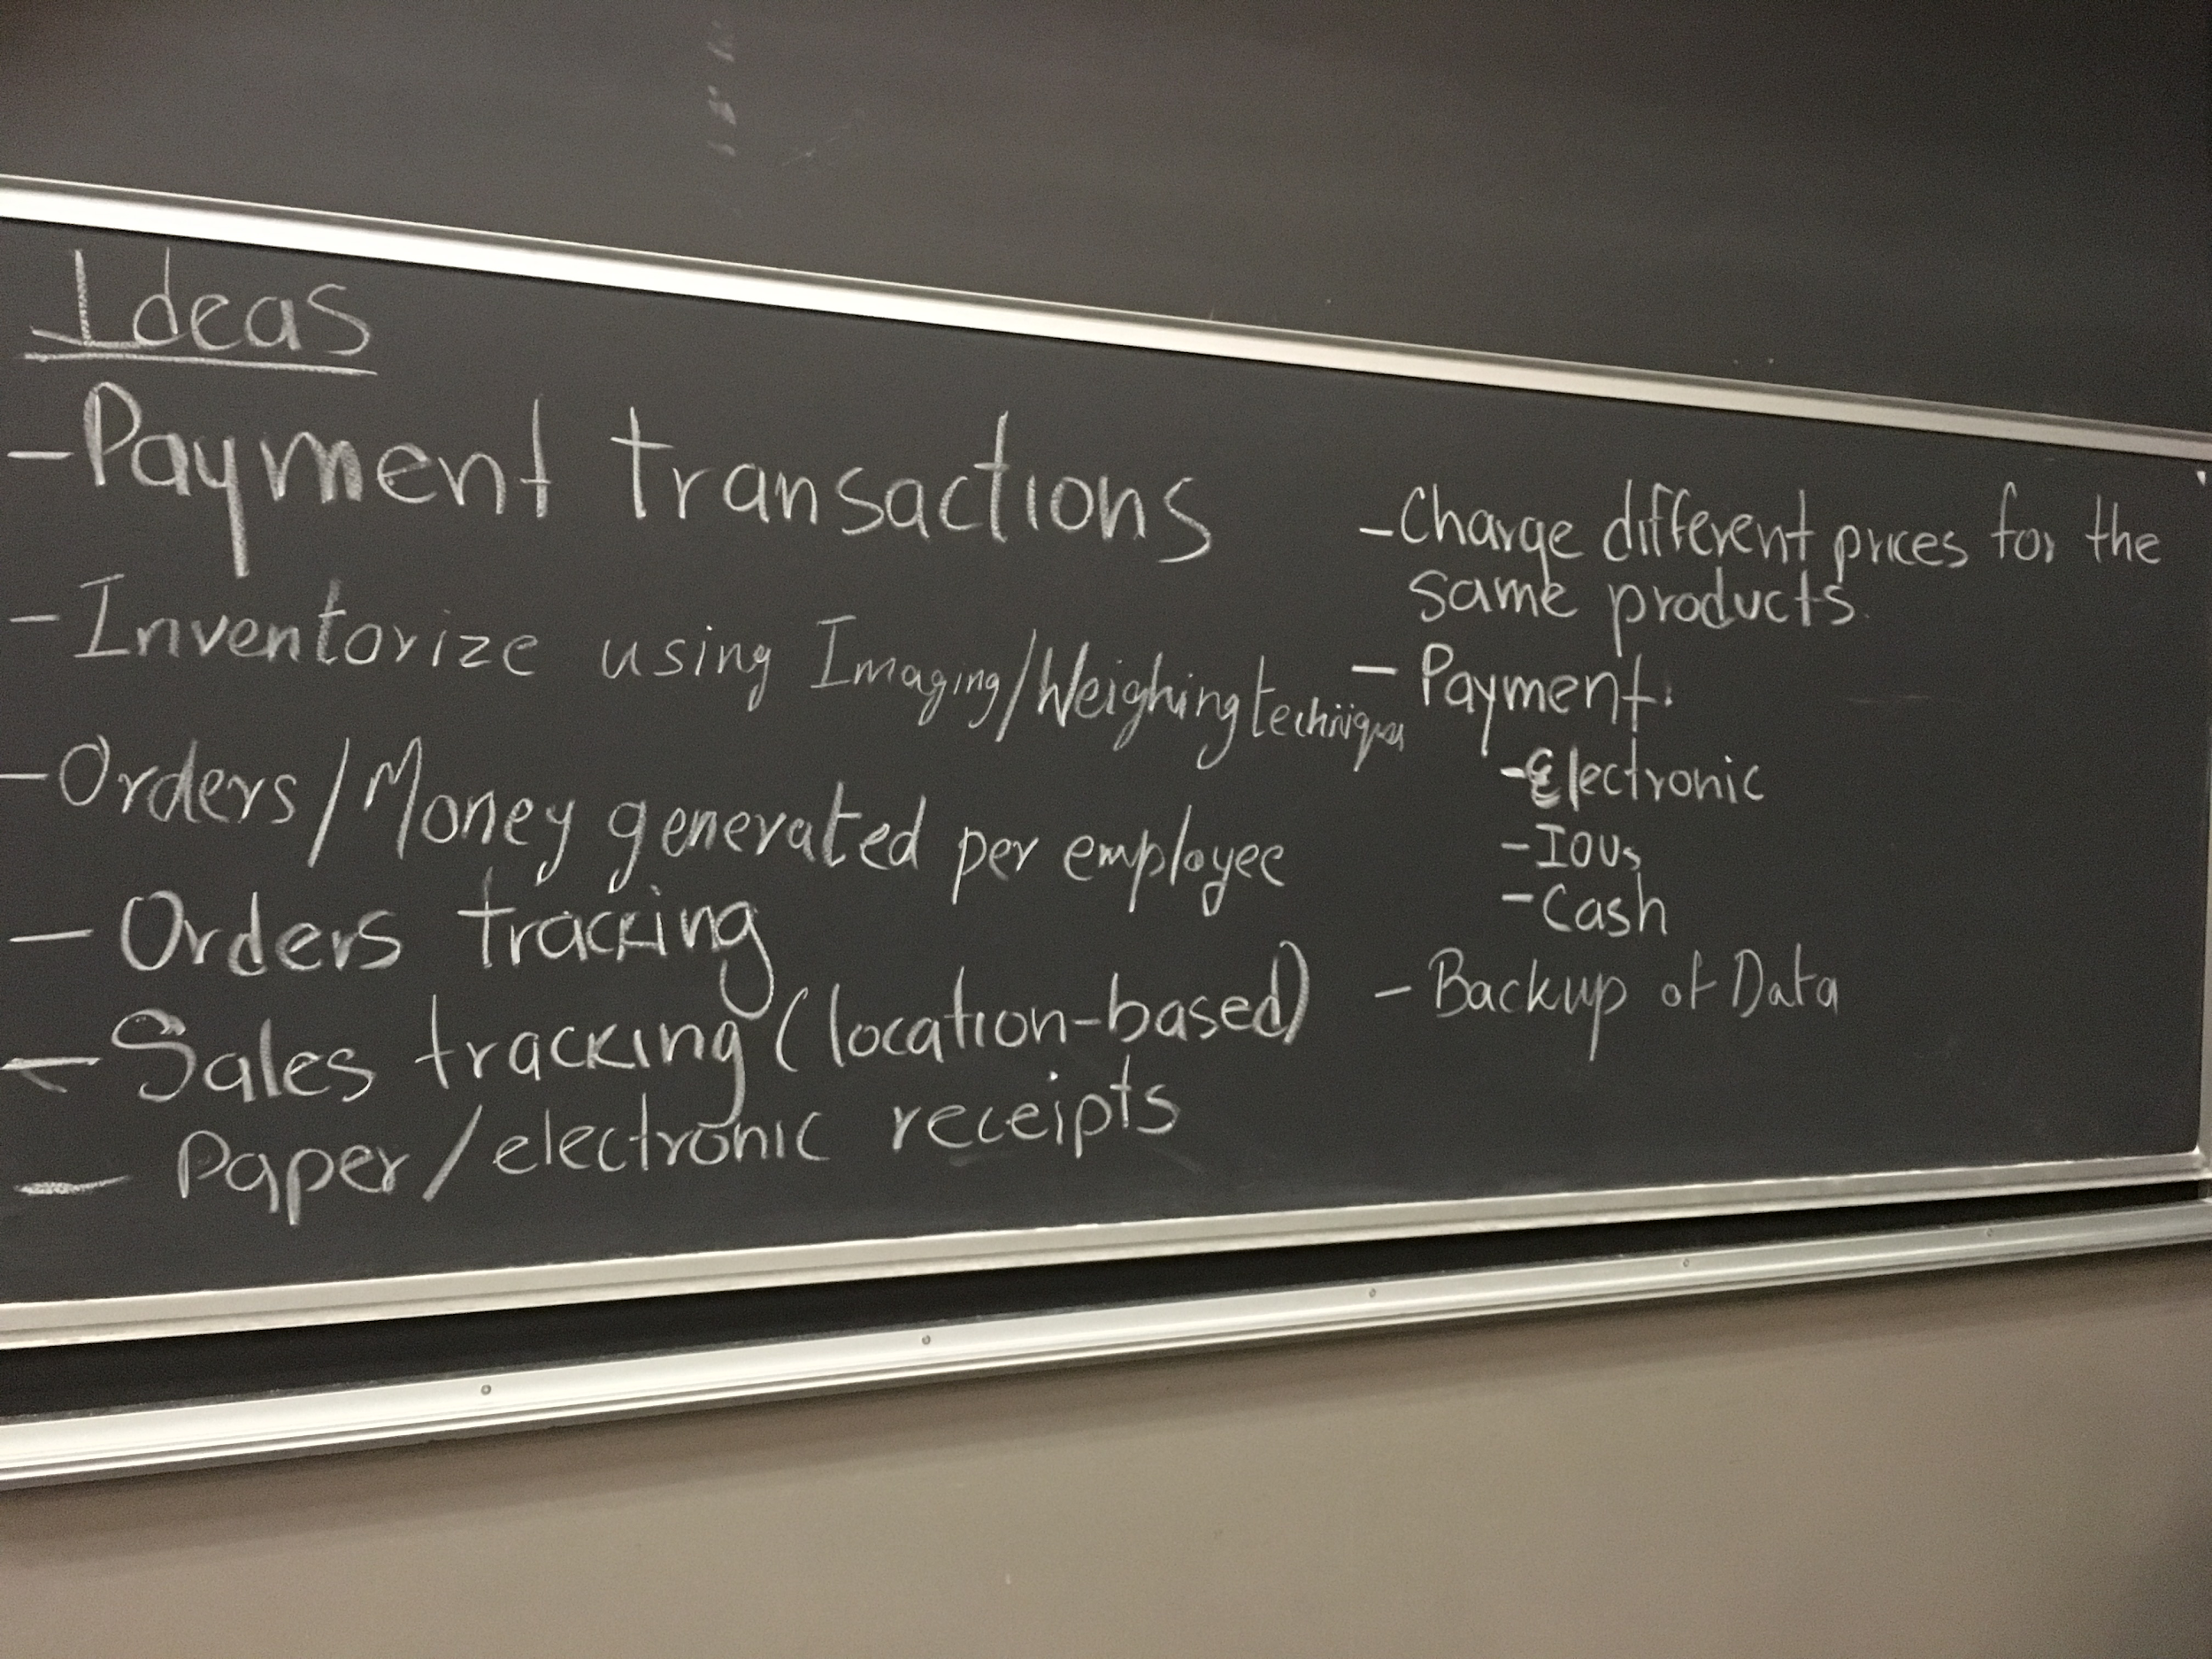 Ideas
- Payment transactions
- Inventorize using Imaging/Weighing techniques
- Orders/Money generated per employee
- Orders tracking
- Sales tracking (location-based)
- Paper/electronic receipts
- Charge different prices for the
same products.
- Payment:
- Electronic
- IOUs
- Cash
- Backup of Data